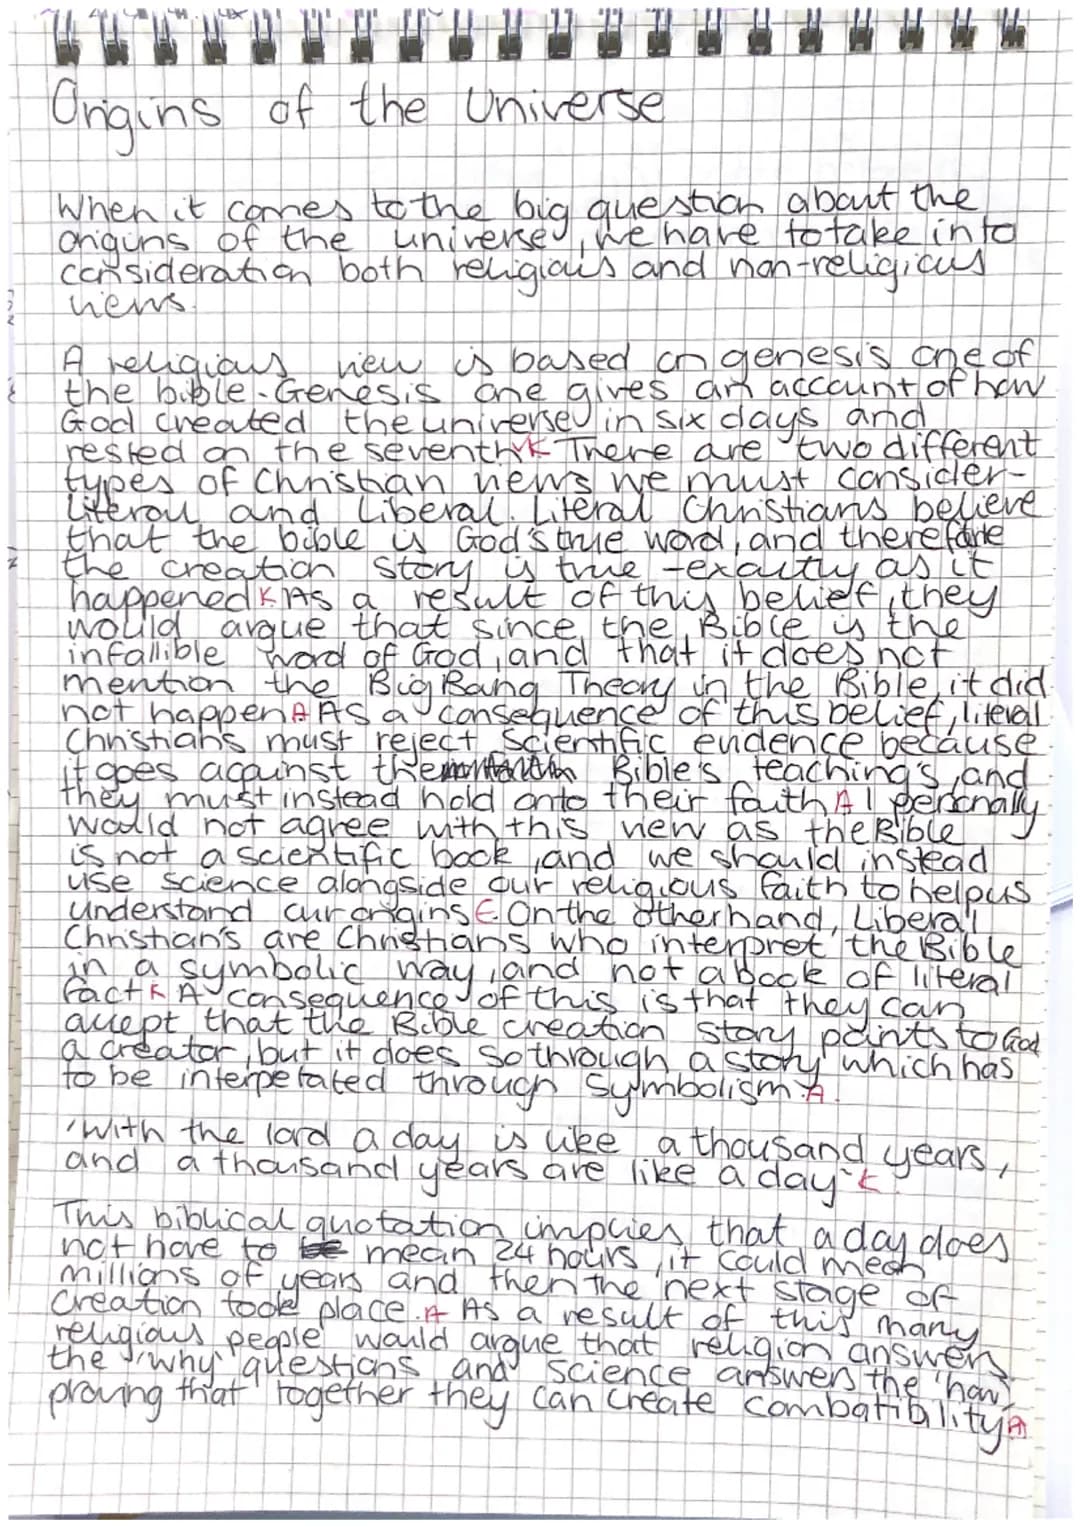 Origins of the Universe
When it comes to the big question about the
origins of the universe, we have to take into
consideration both religious and non-religious
views.
A religious view is based on genesis one of
the bible. Genesis one gives an account of how
God created the universe in six days and
rested on the seventh K There are two different
types of Christian views we must consider-
Literal and Liberal. Literal Christians believe
that the bible is God's true word, and therefore
the creation story is true - exactly as it
happened K As a result of this belief, they
would argue that since the Bible is the
infallible word of God, and that it does not
mention the Big Bang Theory in the Bible, it did
not happen A As a consequence of this belief, literal
Christians must reject Scientific evidence because
it goes against the Bible's teaching's, and
they must instead hold onto their faith A I personally
would not agree with this view as the Bible
is not a scientific book, and we should instead
use science alongside our religious faith to help us
understand our origins E On the other hand, Liberal
Christian's are Christians who interpret the Bible
in a symbolic way, and not a book of literal
fact K A consequence of this is that they can
accept that the Bible creation story points to God
a creator, but it does so through a story which has
to be interpetated through symbolism. A.
'With the lord a day is like a thousand years,
and a thousand years are like a day' K.
This biblical quotation implies that a day does
not have to mean 24 hours, it could mean
millions of years and then the next stage of
creation took place. A As a result of this many
religious people would argue that religion answers
the 'why' questions and science answers the 'how'
proving that together they can create combatibility A